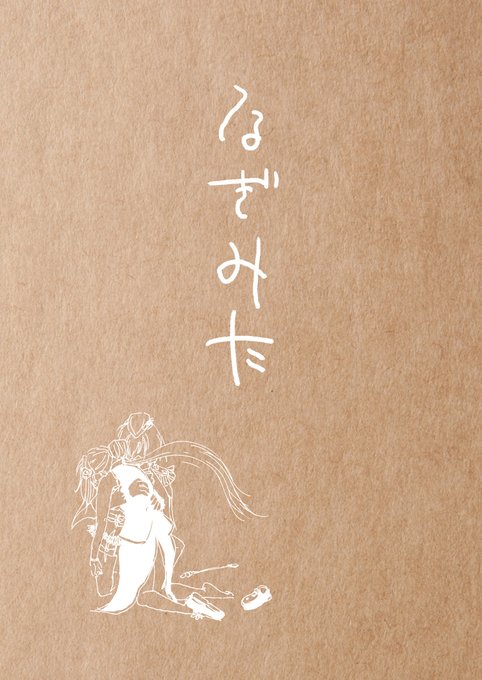 なぎみた